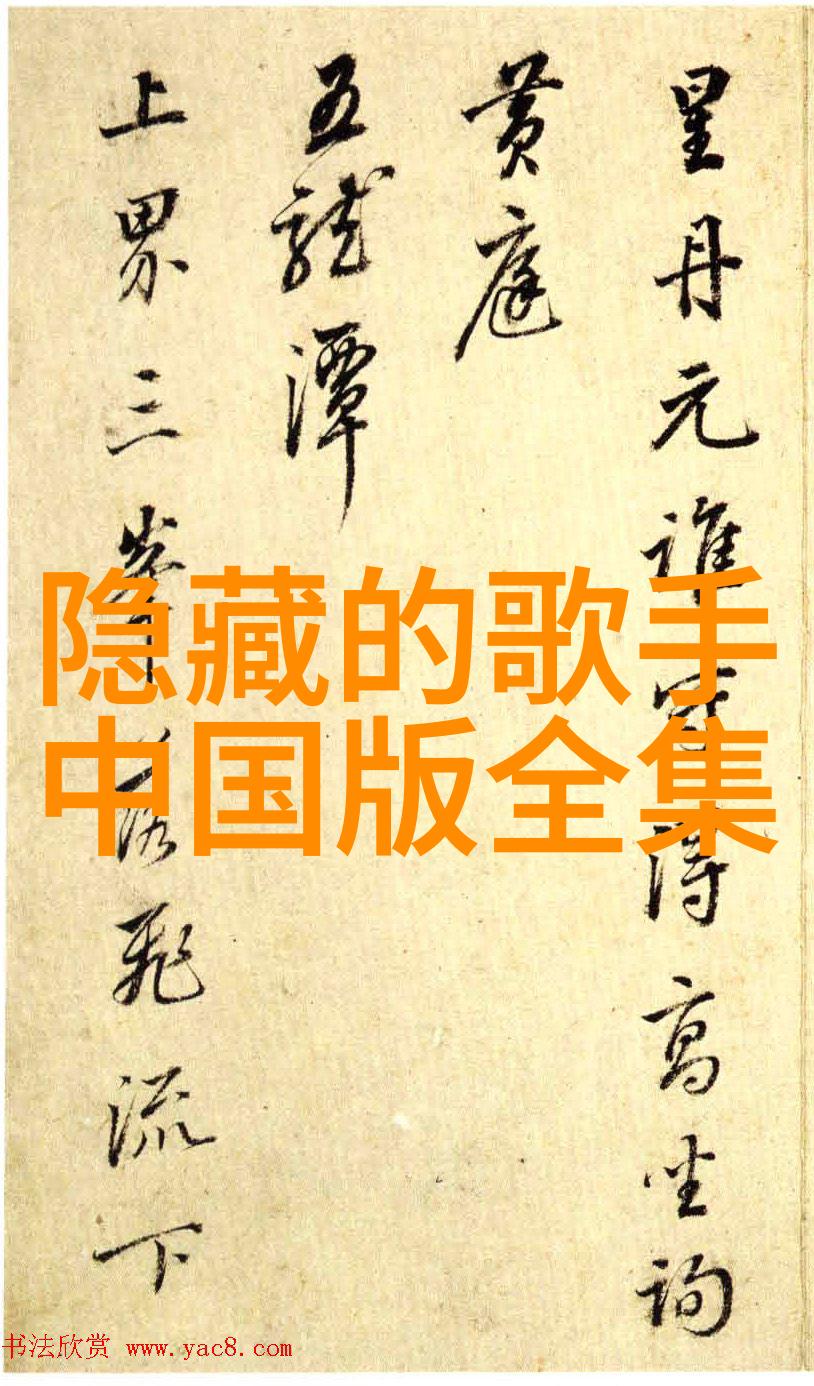 星丹元誰守得高坐詢
黄庭
五龍潭
上界三峯落飛流下
隐藏的歌手
中国版全集
书法欣赏 www.yac8.com